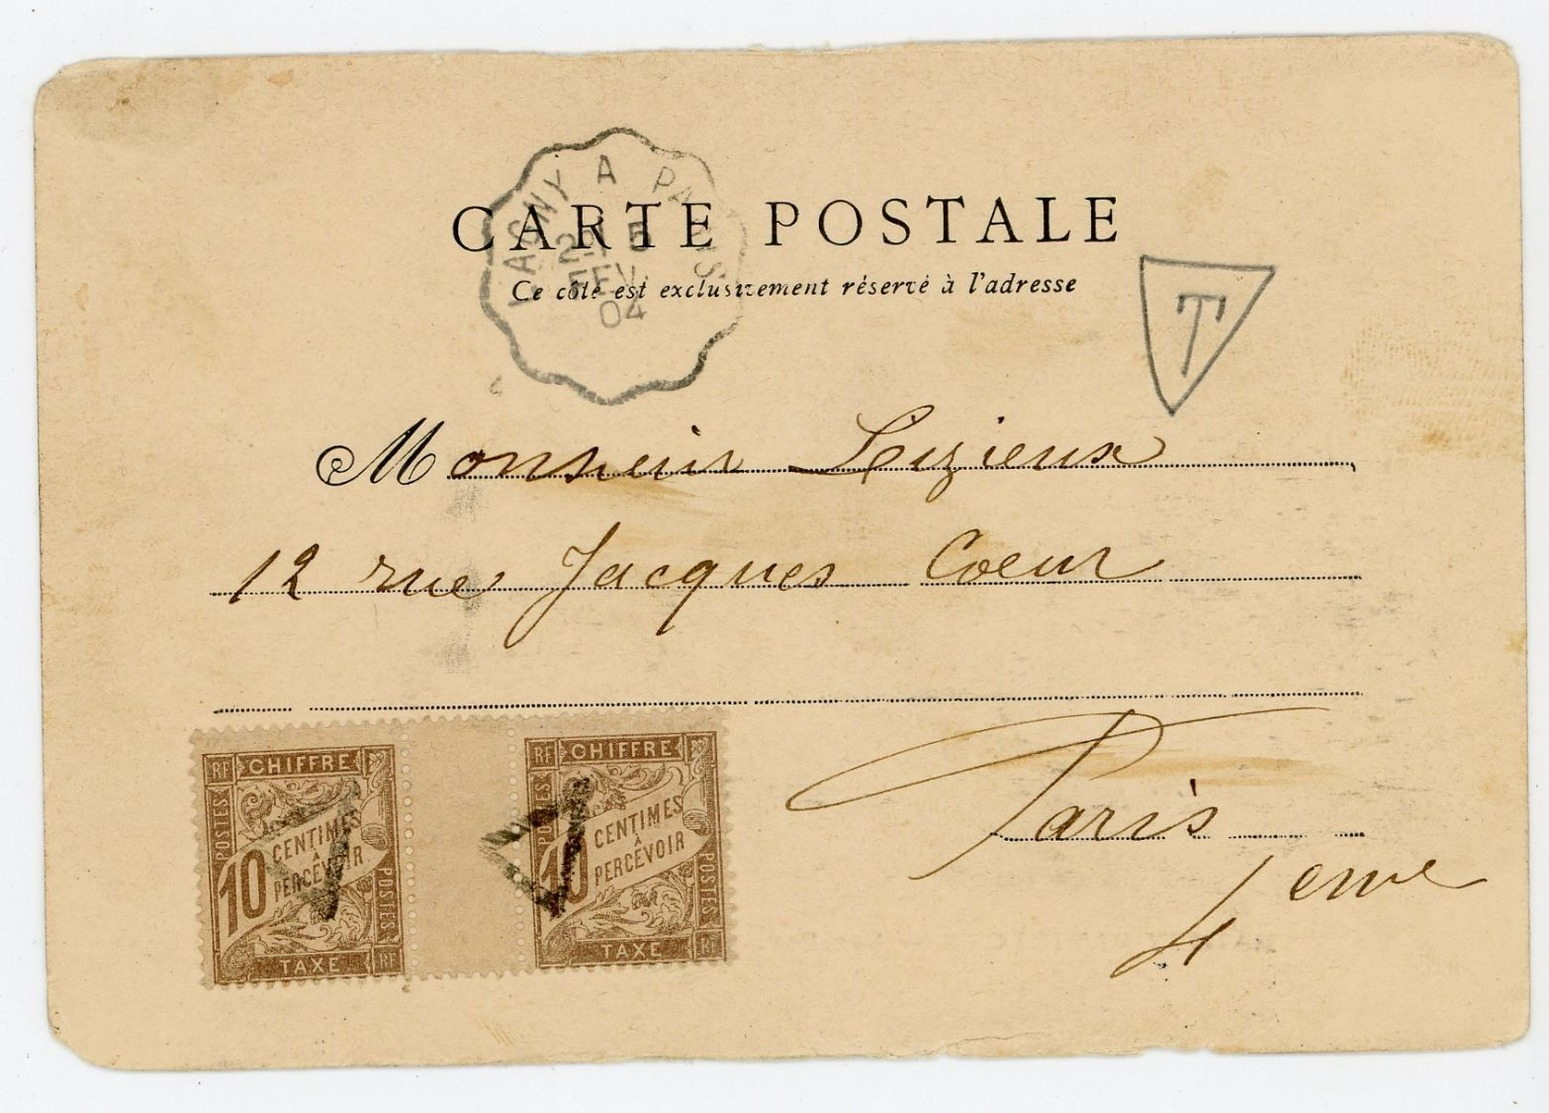 LAGNY A PARIS
5
FEV.
04
CARTE POSTALE
Ce côté est exclusivement réservé à l'adresse
T
Monsieur Lizieux
12 rue Jacques Coeur
Paris
4 eme
RF CHIFFRE
POSTES
10 CENTIMES
À
PERCEVOIR
POSTES
TAXE RF
RF CHIFFRE
POSTES
10 CENTIMES
À
PERCEVOIR
POSTES
TAXE RF